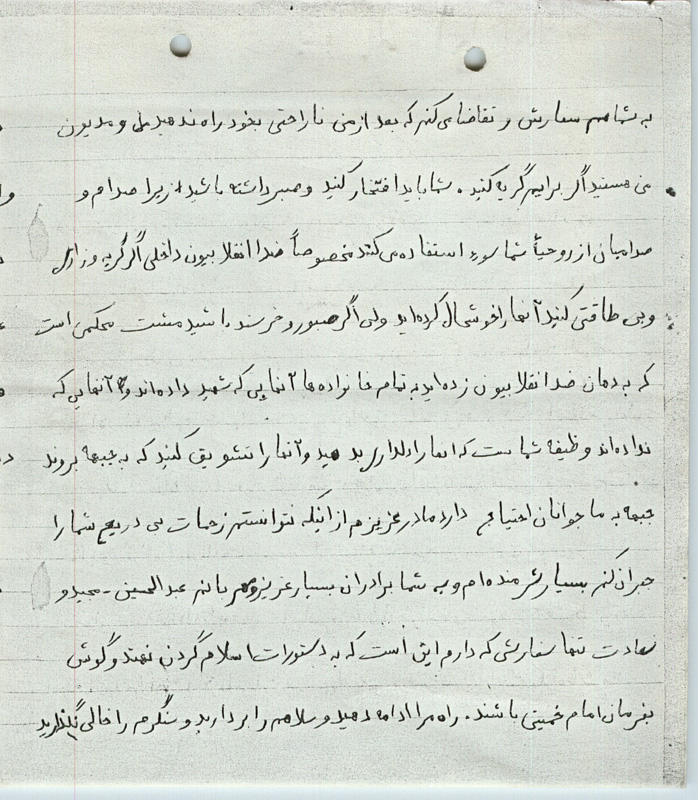 به شما هم سفارش و تقاضا می‌کنم که بعد از من ناراحتی بخود راه ندهید و مدیون
من هستید اگر برایم گریه کنید. شما باید افتخار کنید و صبر داشته باشید زیرا صدام و
صدامیان از روحیهٔ شما سوء استفاده می‌کنند مخصوصاً ضد انقلابیون داخلی اگر گریه و زاری
و بی طاقتی کنید آنها را خوشحال کرده‌اید ولی اگر صبور و خرسند باشید مشت محکمی است
که به دهان ضد انقلابیون زده‌اید به تمام خانواده‌ها آنهایی که شهید داده‌اند و آنهایی که
نداده‌اند وظیفه شماست که آنها را دلداری بدهید و آنها را تشویق کنید که به جبهه بروند
جبهه به ما جوانان احتیاج دارد مادر عزیزم از اینکه نتوانستم زحمات بی دریغ شما را
جبران کنم بسیار شرمنده‌ام و به شما برادران بسیار عزیز و مهربانم عبدالحسین - مجید و
سعادت تنها سفارشی که دارم این است که به دستورات اسلام گردن نهند و گوش
بفرمان امام خمینی باشند. راه مرا ادامه دهید و سلاحم را بردارید و سنگرم را خالی نگذارید